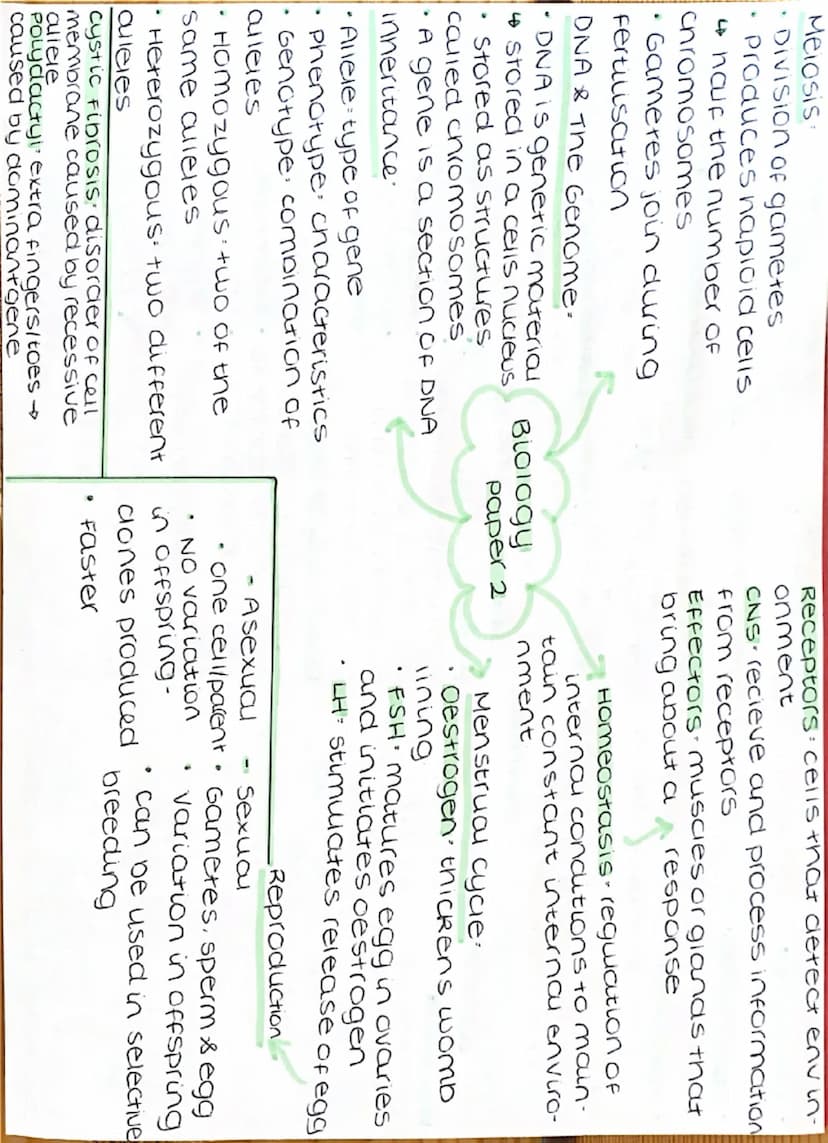 Meiosis:
• Division of gametes
• Produces haploid cells
↳ half the number of
chromosomes
• Gametes join during
fertilisation
DNA & The Genome:
• DNA is genetic material
↳ stored in a cells nucleus
• Stored as structures
called chromosomes
• A gene is a section of DNA
inheritance:
• Allele = type of gene
• Phenotype: characteristics
• Genotype: combination of
alleles
• Homozygous: two of the
same alleles
• Heterozygous: two different
alleles
Cystic fibrosis: disorder of cell
membrane caused by recessive
allele
Polydactyl: extra fingers/toes →
caused by dominant gene
Biology
paper 2
Receptors: cells that detect envin-
onment
CNS: recieve and process information
from receptors
Effectors: muscles or glands that
bring about a response
Homeostasis: regulation of
internal conditions to main-
tain constant internal enviro-
nment
Menstrual cycle:
• Oestrogen: thickens womb
lining
• FSH: matures egg in ovaries
and initiates oestrogen
• LH: stimulates release of egg
Reproduction
- Asexual
• one cell/parent
• No variation
in offspring.
clones produced
• faster
- Sexual
• Gametes, sperm & egg
• Variation in offspring
• Can be used in selective
breeding